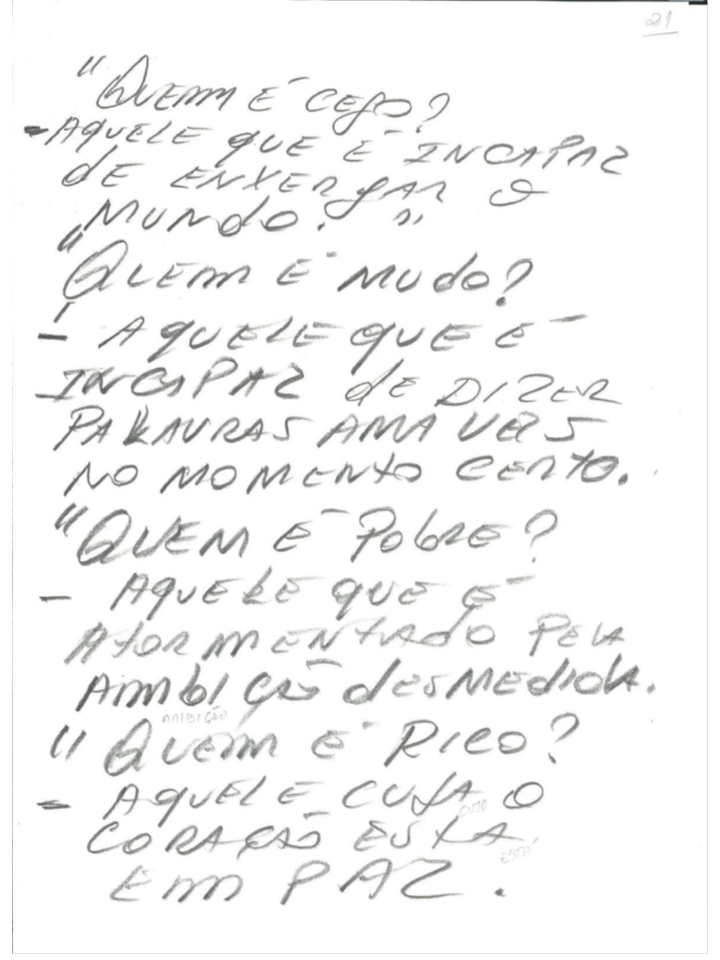 21
"QUEM É CEGO?
- AQUELE QUE É INCAPAZ
DE ENXERGAR O
MUNDO."
"QUEM É MUDO?
- AQUELE QUE É
INCAPAZ DE DIZER
PALAVRAS AMAVEIS
NO MOMENTO CERTO.
"QUEM É POBRE?
- AQUELE QUE É
ATORMENTADO PELA
AMBIÇÃO DESMEDIDA.
AMBIÇÃO
"QUEM É RICO?
- AQUELE CUJA O
CUJO
CORAÇÃO ESTA
ESTÁ
EM PAZ.